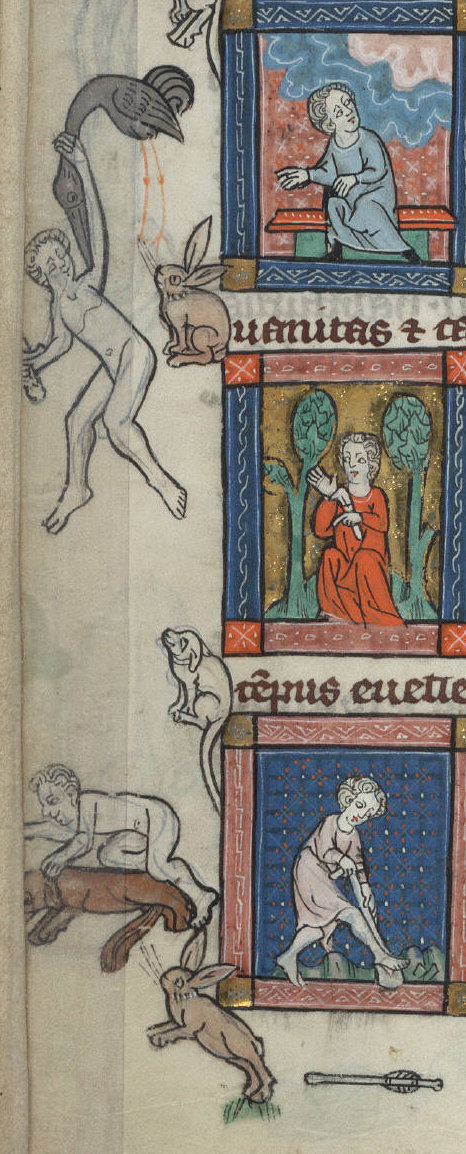 uanitas ⁊ ca
te̅pus euelle